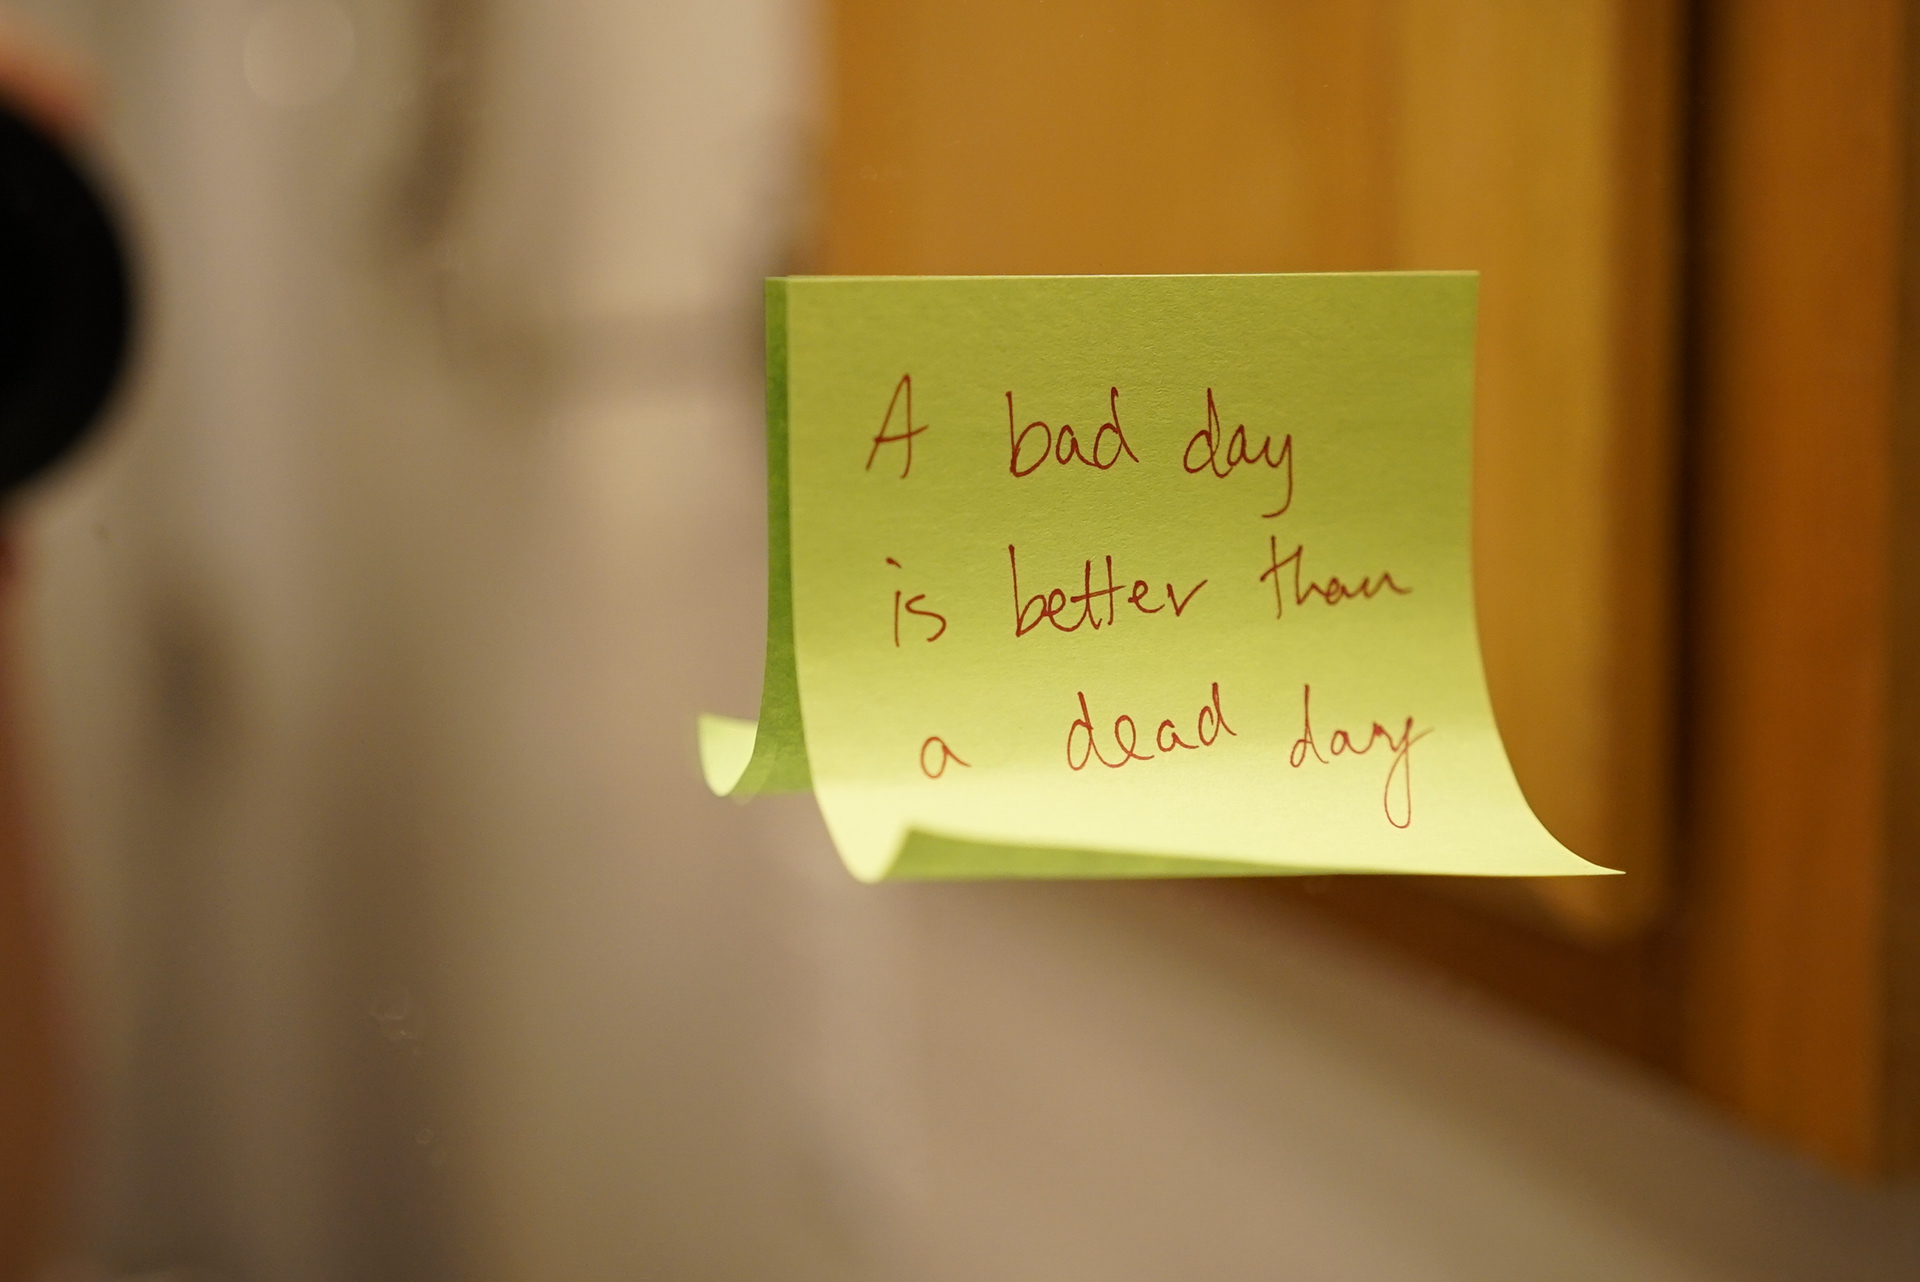 A bad day
is better than
a dead day